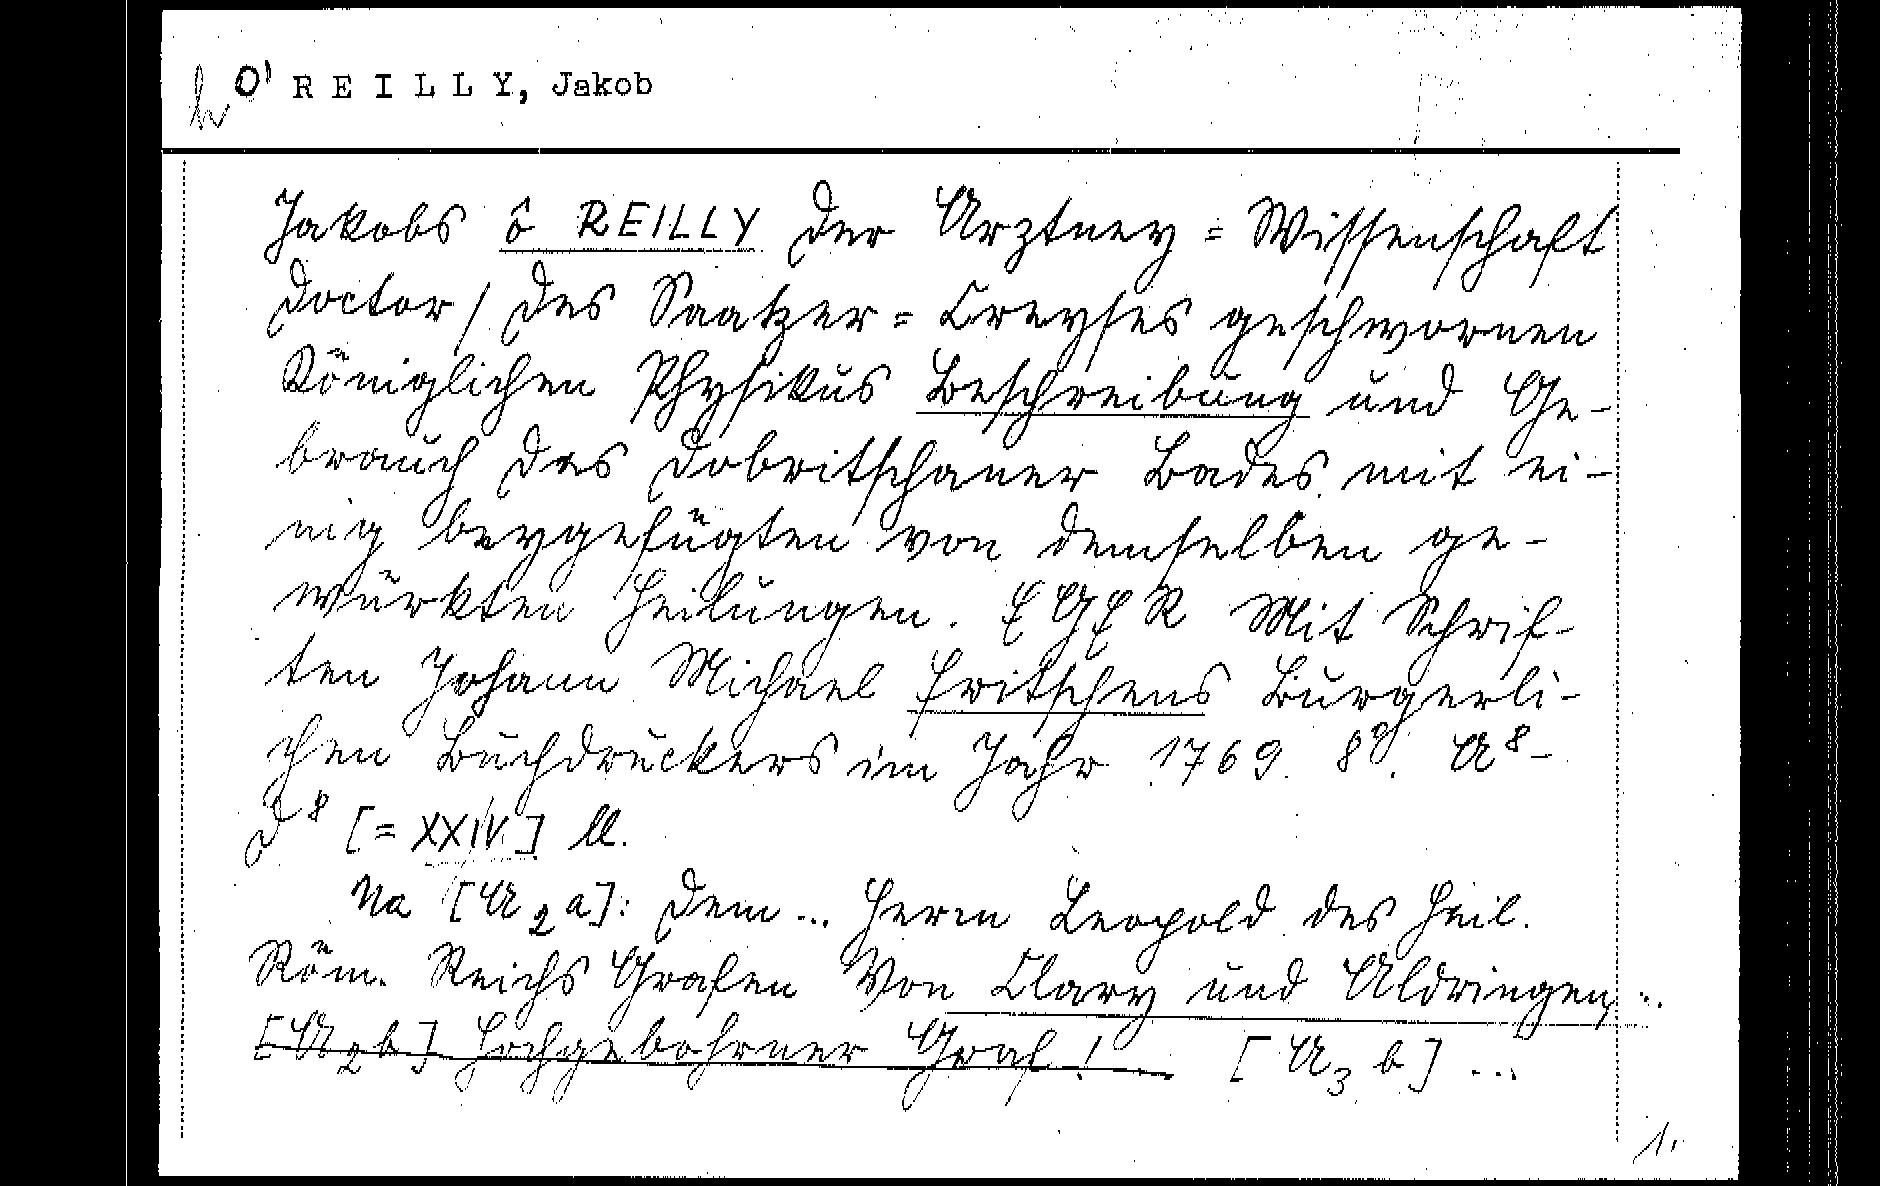 O' R E I L L Y, Jakob
Jakobs ô REILLY der Arztney = Wissenschaft
Doctor / des Saatzer = Creyses geschwornen
Königlichen Physikus Beschreibung und Ge-
brauch des Dobritschaner Bades mit ei-
nig beygefügten von demselben ge-
würkten Heilungen. EGER Mit Schrif-
ten Johann Michael Fritschens Burgerli-
chen Buchdruckers im Jahr 1769. 8°. A⁸-
D⁸ [= XXIV] ll.
Na [A₂a]: Dem ... Herrn Leopold des Heil.
Röm. Reichs Grafen Von Clary und Aldringen ...
[A₂b] Hochgebohrner Graf! [A₃b] ...
1.